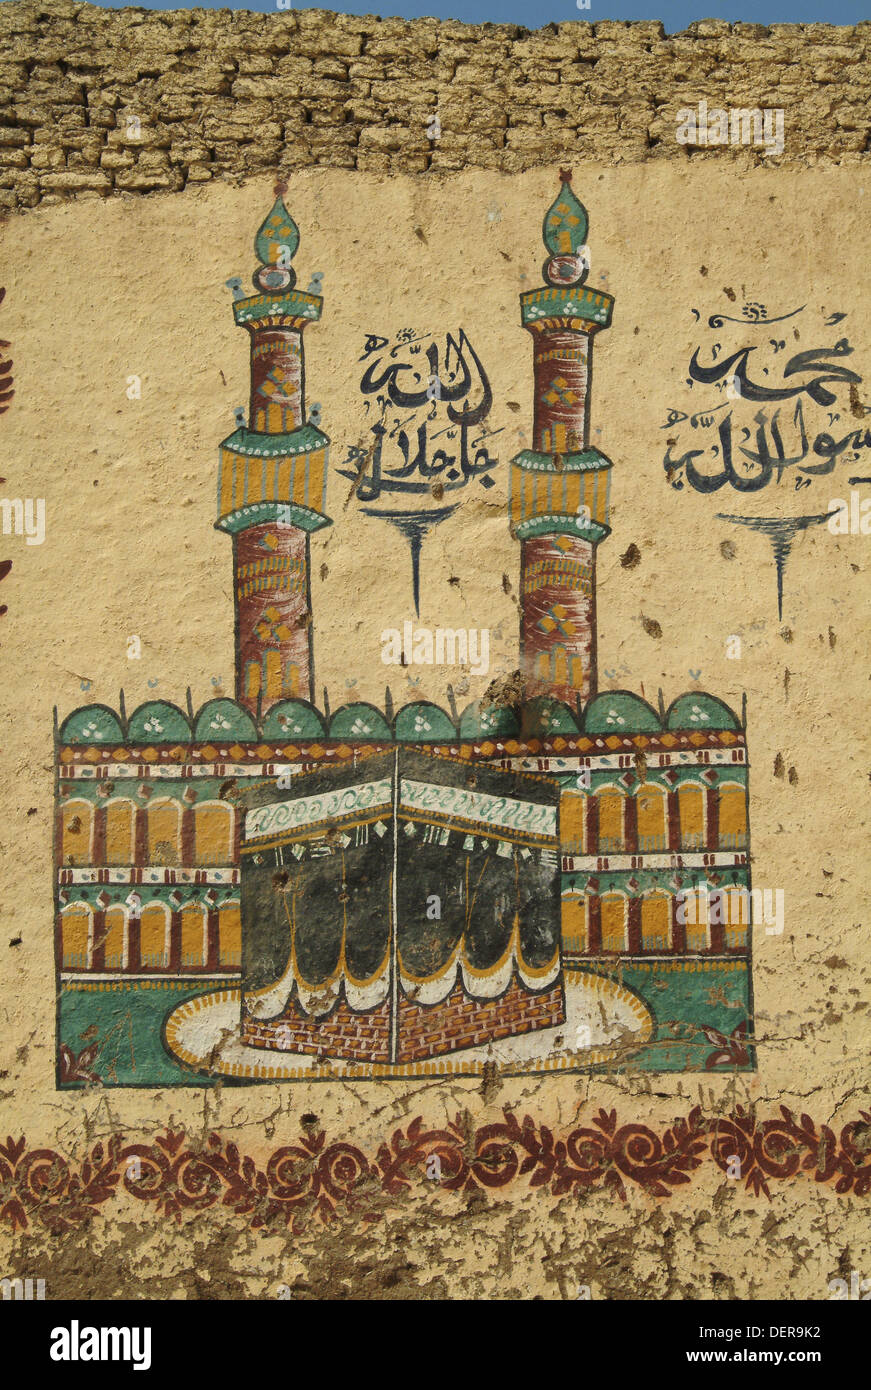 الله
جل جلاله
محمد
رسول الله
alamy
Image ID: DER9K2
www.alamy.com